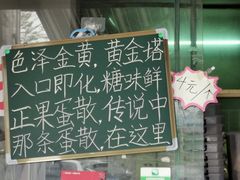 色泽金黄,黄金塔
入口即化,糖味鲜
正果蛋散,传说中
那条蛋散,在这里
4元/个